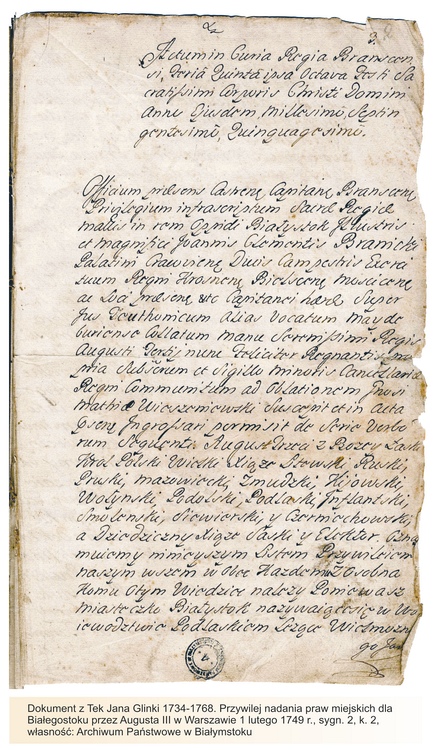 3.
Actum in Curia Regia Branscen
si, Feria Quinta ipsa Octava Festi Sa
cratissimi Corporis Christi Domini
Anno Ejusdem, Millesimo, Septin
gentesimo, Quinquagesimo.
Officium præsens Castrense Capitane Branscene
Privilegium infrascriptum Sacræ Regiæ
mattis in rem Oppidi Białystok Illustris
et magnifici Joannis Clementis Branicki
Palatini Cracviene Ducis Campestris Exerci
tuum Regni Krosnene Bielscene Moscicene
ac Loci præsene, etc Capitanei hæredis Super
Jus Teuthonicum alias vocatum Mayde
buriense Collatum manu Serenissimi Regis
Augusti Tertij nunc Feliciter Regnantis
Subscriptum et Sigillo minoris Cancellariæ
Regni Communitum ad Oblationem
Mathiæ Wieszemowski Suscepit et in acta
Ingrossari permisit de Serie verbo
rum Sequenti. August Trzeci z Bożey Łaski
Krol Polski Wielki Xiąże Litewski Ruski,
Pruski, mazowiecki, Zmudzki, Kijowski,
Wołynski Podolski, Podlaski, Inflantski,
Smolenski, Siewierski, y Czerniechowski,
a Dziedziczny Xiąże Saski y Elektor. Ozna
muiemy ninieyszym Listem Przywileiem
naszym wszem w obec Kazdemu z Osobna
Komu Otym Wiedziec nalezy Poniewasz
miasteczko Białystok nazywaiące się w Wo
iewodztwie Podlaskiem Lezące Wielmozny
go Jana
Dokument z Tek Jana Glinki 1734-1768. Przywilej nadania praw miejskich dla
Białegostoku przez Augusta III w Warszawie 1 lutego 1749 r., sygn. 2, k. 2,
własność: Archiwum Państwowe w Białymstoku